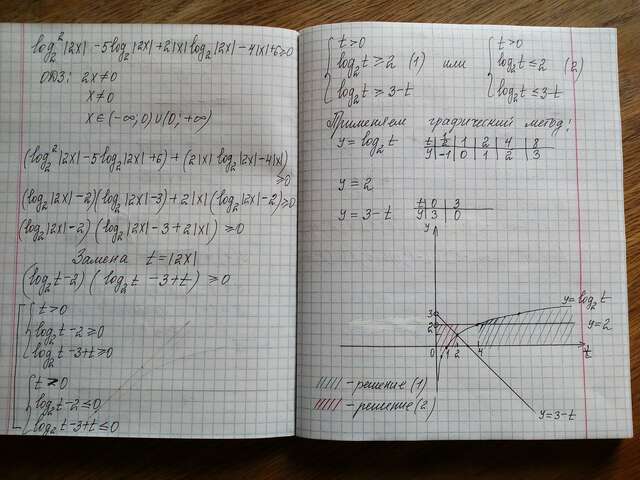 log₂²|2x| - 5log₂|2x| + 2|x|log₂|2x| - 4|x| + 6 ≥ 0
ОДЗ: 2x ≠ 0
x ≠ 0
x ∈ (-∞; 0) ∪ (0; +∞)
(log₂²|2x| - 5log₂|2x| + 6) + (2|x| log₂|2x| - 4|x|) ≥ 0
(log₂|2x| - 2)(log₂|2x| - 3) + 2|x|(log₂|2x| - 2) ≥ 0
(log₂|2x| - 2)(log₂|2x| - 3 + 2|x|) ≥ 0
Замена t = |2x|
(log₂t - 2)(log₂t - 3 + t) ≥ 0
t > 0
log₂t - 2 ≥ 0
log₂t - 3 + t ≥ 0
t > 0
log₂t - 2 ≤ 0
log₂t - 3 + t ≤ 0
t > 0
log₂t ≥ 2 (1) или
log₂t ≥ 3 - t
t > 0
log₂t ≤ 2 (2)
log₂t ≤ 3 - t
Применяем графический метод!
y = log₂t
t | 1/2 | 1 | 2 | 4 | 8
y | -1 | 0 | 1 | 2 | 3
y = 2
y = 3 - t
t | 0 | 3
y | 3 | 0
y
y = log₂t
3
2
y = 2
0 1 2 4 t
- решение (1)
- решение (2)
y = 3 - t